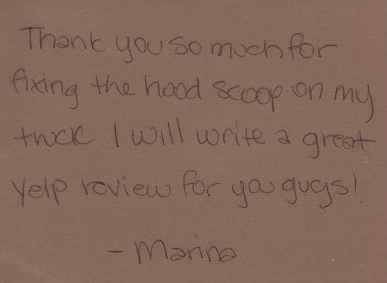 Thank you so much for
fixing the hood scoop on my
truck. I will write a great
yelp review for you guys!
- Marina